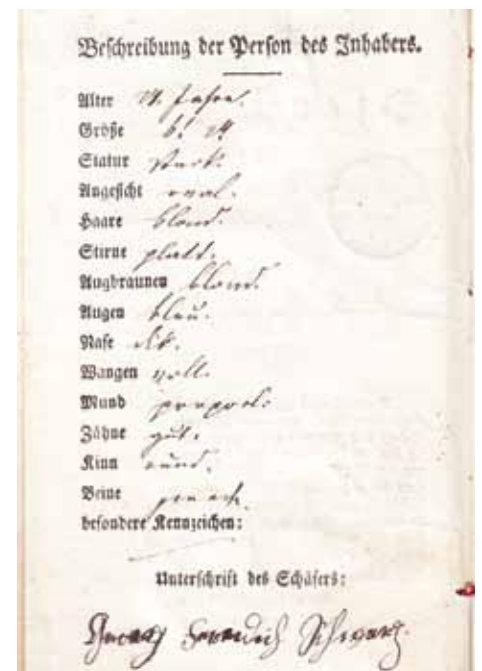 Beschreibung der Person des Inhabers.
Alter Jahre.
Größe 6!
Statur stark.
Angesicht oval.
Haare blond.
Stirne platt.
Augbraunen blond.
Augen blau.
Nase dik.
Wangen voll.
Mund proport:
Zähne gut.
Kinn rund.
Beine gerade.
besondere Kennzeichen:
Unterschrift des Schäfers:
Georg Friedrich Schwarz.